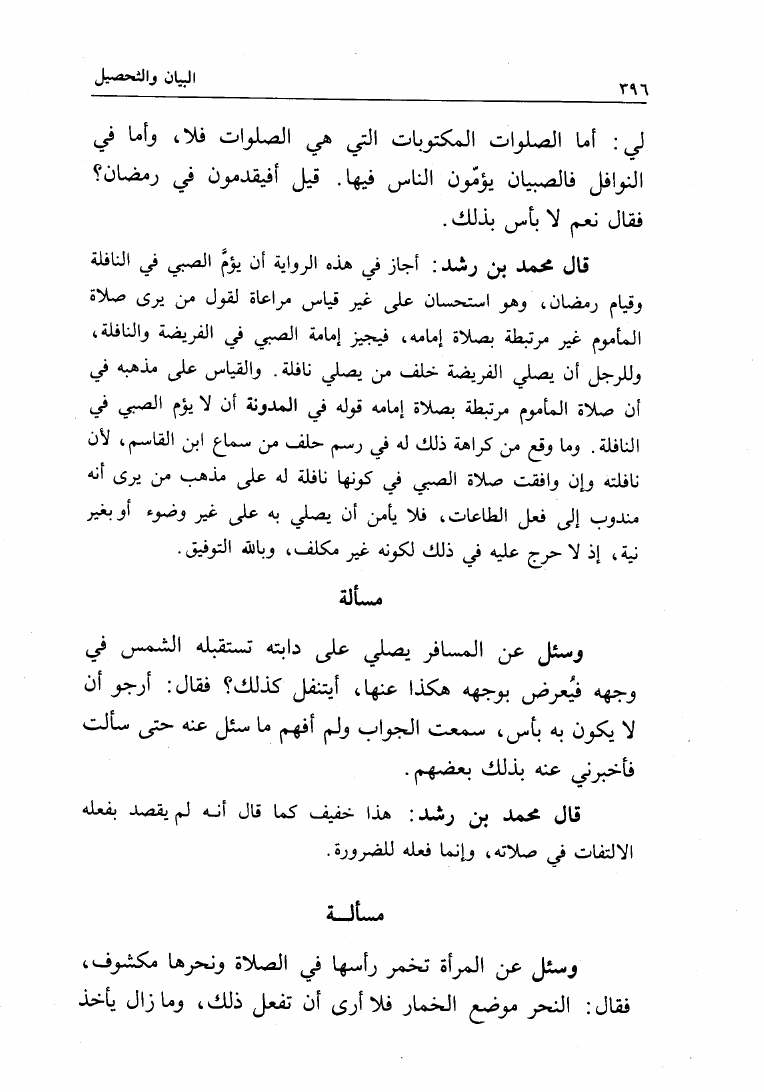 البيان والتحصيل
٣٩٦
لي: أما الصلوات المكتوبات التي هي الصلوات فلا، وأما في
النوافل فالصبيان يؤمّون الناس فيها. قيل أفيقدمون في رمضان؟
فقال نعم لا بأس بذلك.
قال محمد بن رشد: أجاز في هذه الرواية أن يؤمَّ الصبي في النافلة
وقيام رمضان، وهو استحسان على غير قياس مراعاة لقول من يرى صلاة
المأموم غير مرتبطة بصلاة إمامه، فيجيز إمامة الصبي في الفريضة والنافلة،
وللرجل أن يصلي الفريضة خلف من يصلي نافلة. والقياس على مذهبه في
أن صلاة المأموم مرتبطة بصلاة إمامه قوله في المدونة أن لا يؤم الصبي في
النافلة. وما وقع من كراهة ذلك له في رسم حلف من سماع ابن القاسم، لأن
نافلته وإن وافقت صلاة الصبي في كونها نافلة له على مذهب من يرى أنه
مندوب إلى فعل الطاعات، فلا يأمن أن يصلي به على غير وضوء أو بغير
نية، إذ لا حرج عليه في ذلك لكونه غير مكلف، وبالله التوفيق.
مسألة
وسئل عن المسافر يصلي على دابته تستقبله الشمس في
وجهه فيُعرض بوجهه هكذا عنها، أيتنفل كذلك؟ فقال: أرجو أن
لا يكون به بأس، سمعت الجواب ولم أفهم ما سئل عنه حتى سألت
فأخبرني عنه بذلك بعضهم.
قال محمد بن رشد: هذا خفيف كما قال أنه لم يقصد بفعله
الالتفات في صلاته، وإنما فعله للضرورة.
مسألة
وسئل عن المرأة تخمر رأسها في الصلاة ونحرها مكشوف،
فقال: النحر موضع الخمار فلا أرى أن تفعل ذلك، وما زال يأخذ